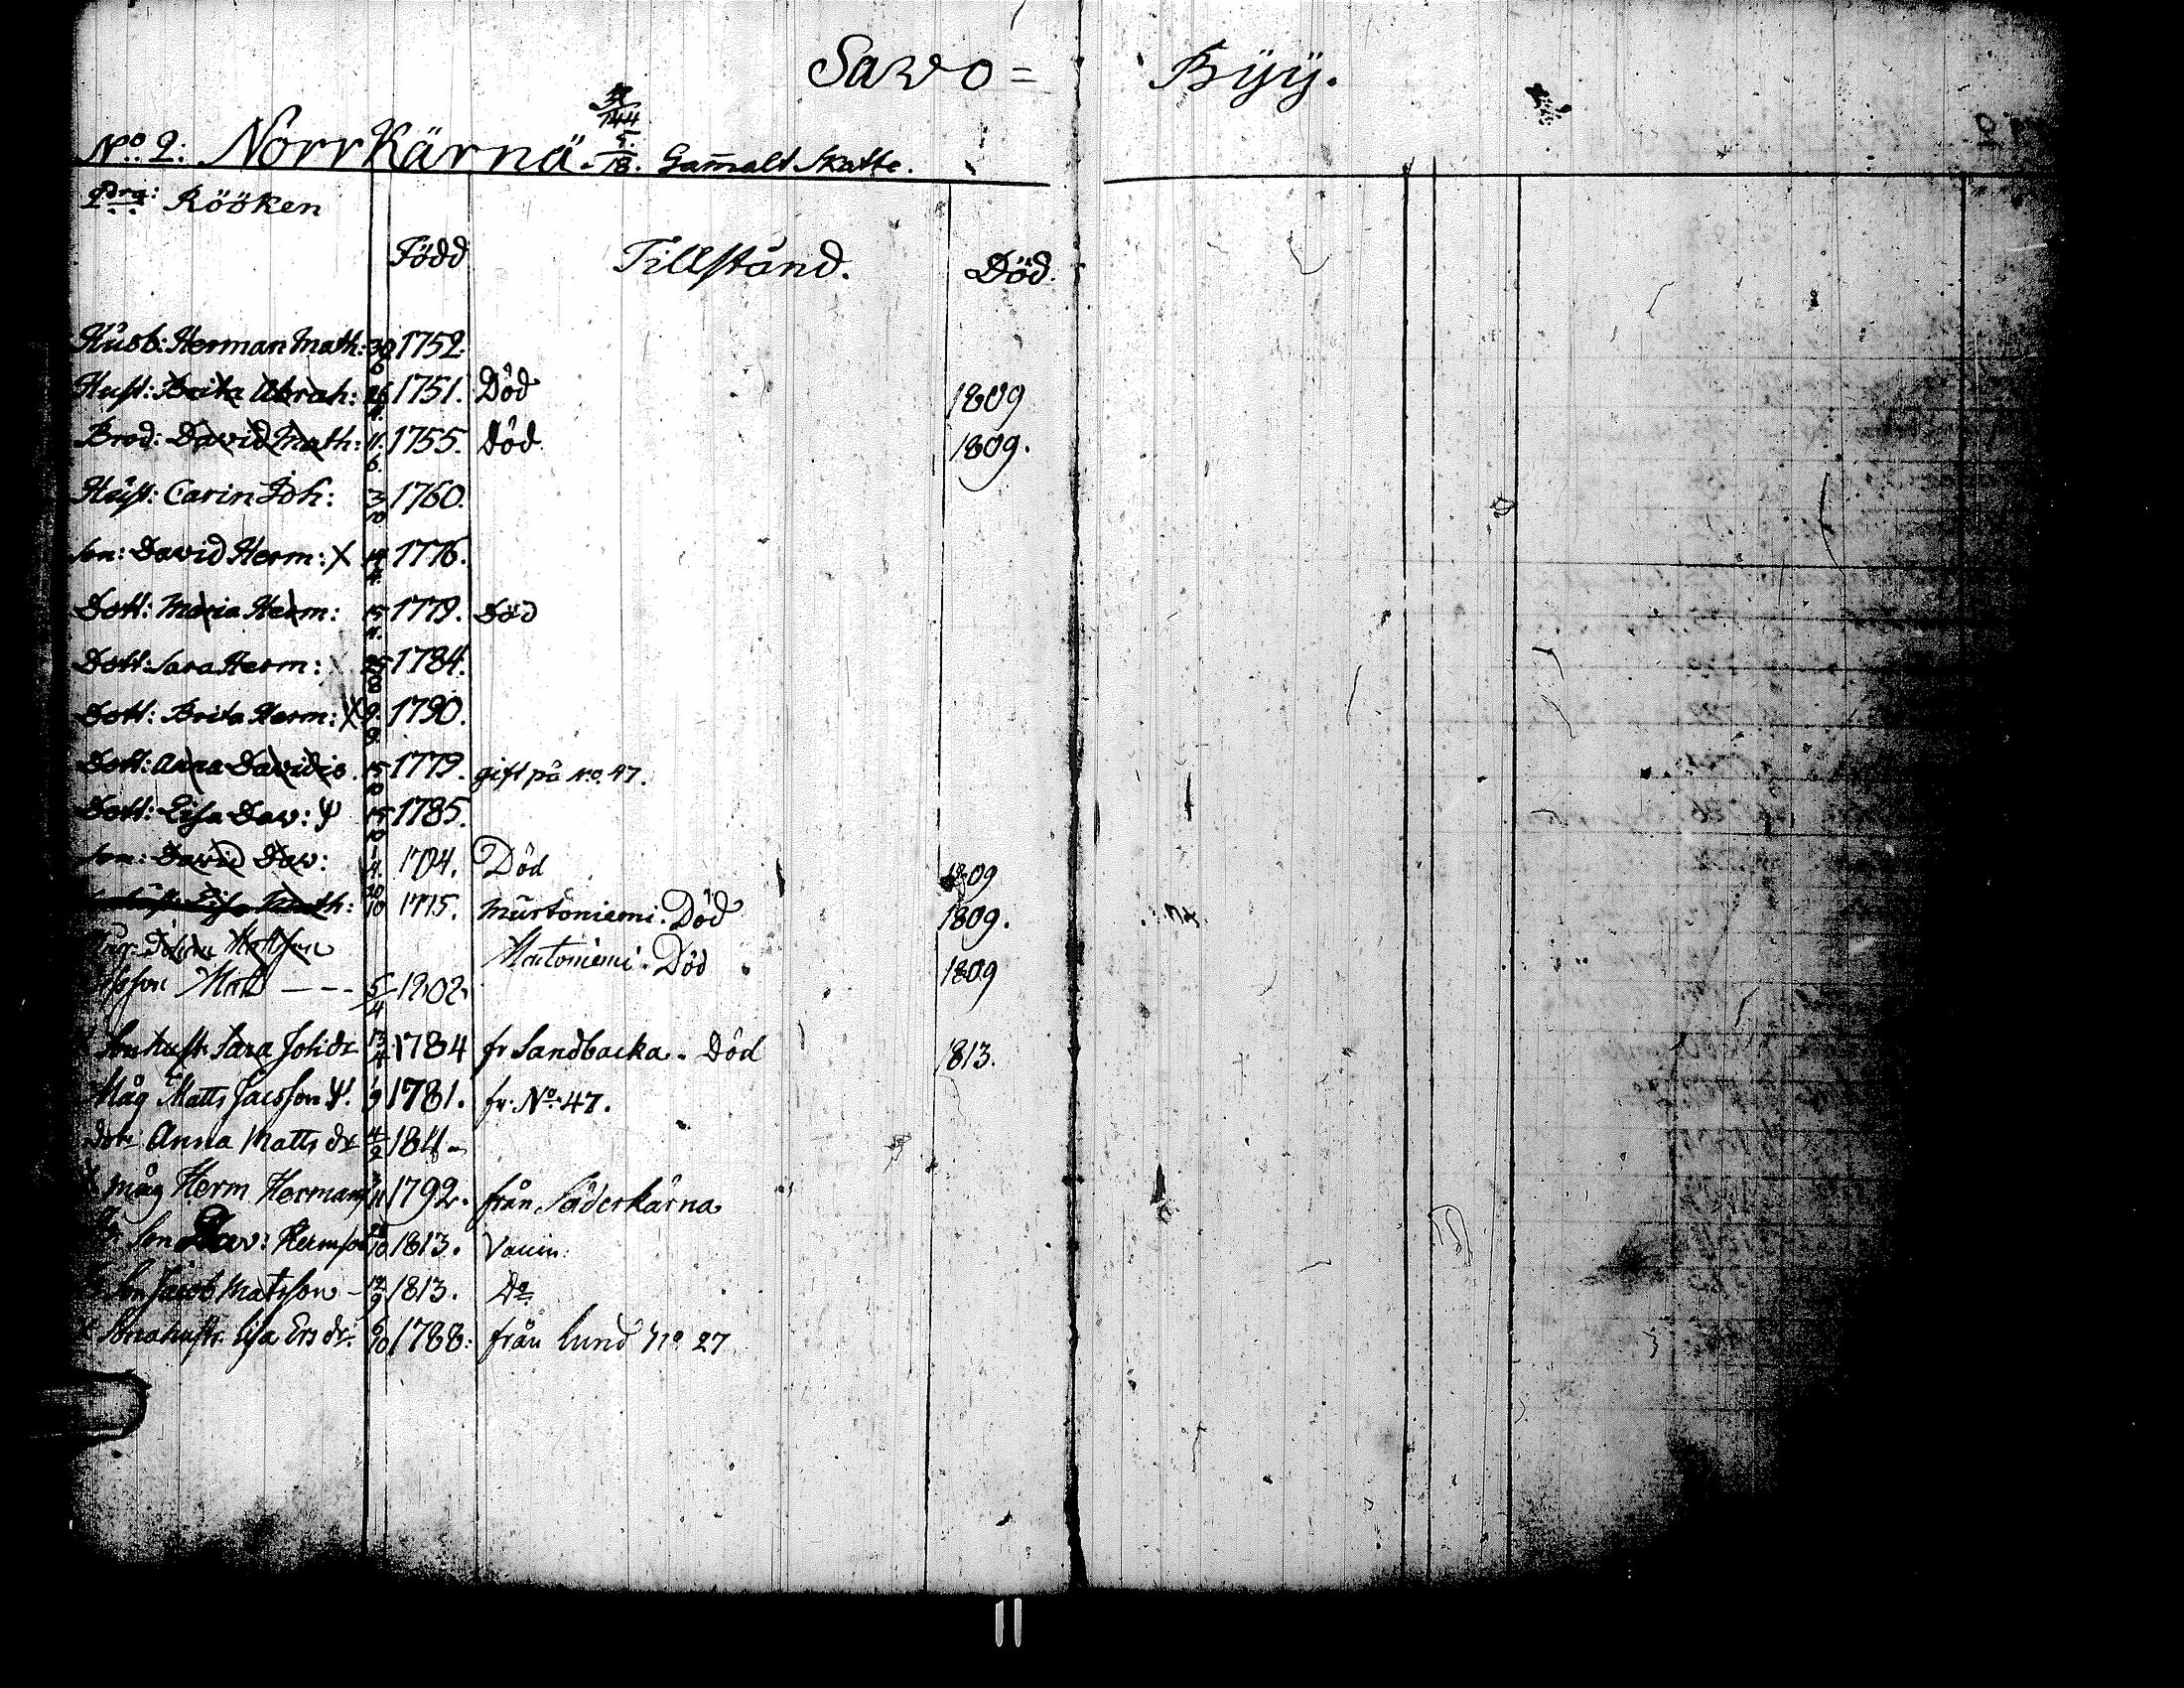 Sawo= Byÿ.
37/144
No: 2: Norr Kärnä. 5/18. Gam̄alt Skatte.
2dra: Rööken
Född Tillstånd. Död.
Husb: Herman Math: 30/6 1752.
Hust: Brita Abrah: 26/11 1751. Död 1809
Brod: David Math: 11/6 1755. Död 1809.
Hust: Carin Joh: 3/10 1760.
Son: David Herm: X 14/4 1776.
Dott: Maria Herm: 15/11 1779. Död
Dott: Sara Herm: 25/8 1784.
Dott: Brita Herm: 9/9 1790.
Dott: Anna Davidis 15/10 1779. gift på No. 47.
Dott: Lisa Dav: 15/10 1785.
Son: David Dav: 1/4 1704. Död 1809
Lisa Math: 20/10 1775. Murtoniemi. Död 1809.
Johan Mattsson Murtoniemi. Död 1809
Matts --- 5/4 1802.
Son hust. Sara Johdr 13/4 1784 fr Sandbacka. Död 1813.
Måg Matts Jacsson 1/9 1781. fr. No. 47.
Dotr Anna Matts dr 4/2 1811 -
Måg Herm Hermans 1792. från Söderkärna
Son Dav: Hermson 28/10 1813. Vaccin:
Son Jacob Matsson - 17/9 1813. Do
Sonahustr. Lisa Ers dr. 6/10 1788: från Lund No 27
11